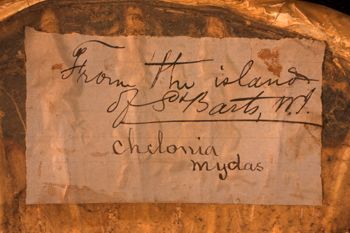 From the island
of St Barts, W.I.
chelonia
mydas